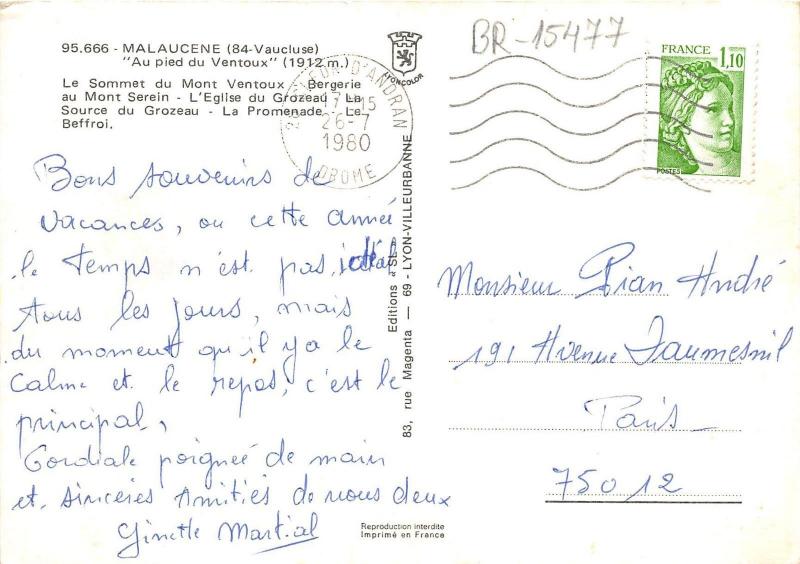 BR-15477
95.666 - MALAUCENE (84-Vaucluse)
"Au pied du Ventoux" (1912 m.)
Le Sommet du Mont Ventoux - Bergerie
au Mont Serein - L'Eglise du Grozeau - La
Source du Grozeau - La Promenade - Le
Beffroi.
LYONCOLOR
D'ANDRAN
17-15
26-7
1980
DROME
FRANCE
1,10
POSTES
Bons souvenirs de
vacances, ou cette année
le temps n'est pas idéal
tous les jours, mais
du moment qu'il y a le
calme et le repos, c'est le
principal,
Cordiale poignée de main
et sincères amitiés de nous deux
Ginette Martial
83, rue Magenta — 69 - LYON-VILLEURBANNE
Monsieur Pian André
191 Avenue Daumesnil
Paris
75012
Reproduction interdite
Imprimé en France